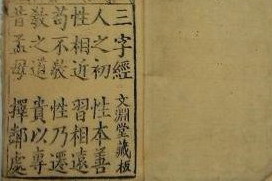 三字經
文淵堂藏板
人之初 性本善
性相近 習相遠
苟不教 性乃遷
教之道 貴以專
昔孟母 擇鄰處